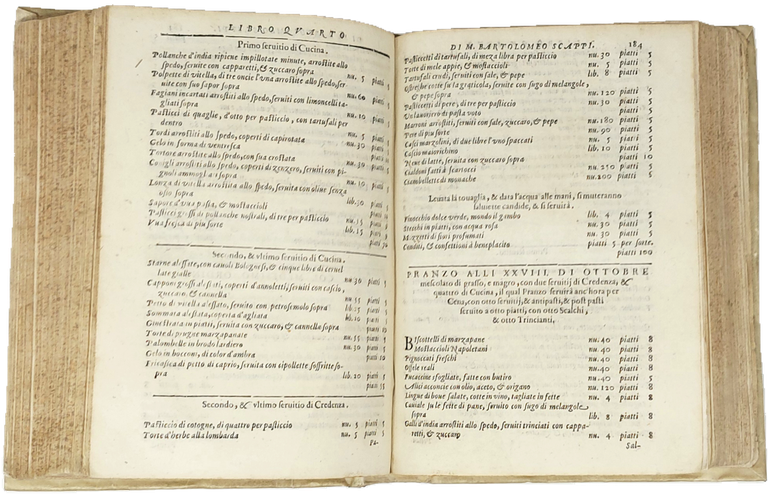 LIBRO QVARTO
Primo seruitio di Cucina.
Pollanche d'india ripiene impillotate minute, arrostite allo
spedo, seruite con capparetti, & zuccaro sopra nu. 5 piatti 5
Polpette di vitella, di tre oncie l'vna arrostite allo spedo, ser
uite con suo sapor sopra nu. 60 piatti
Fagiani incartati arrostiti allo spedo, seruiti con limoncelli ta-
gliati sopra nu. 10 piatti
Pasticci di quaglie, d'otto per pasticcio, con tartufali per
dentro nu. 5 piatti
Tordi arrostiti allo spedo, coperti di capirotata nu. 30 piatti
Gelo in forma di ventresca piatti 10
Tortore arrostite allo spedo, con sua crostata nu. 30 piatti
Conigli arrostiti allo spedo, coperti di zenzero, seruiti con pi-
gnoli ammogliati sopra nu. 10 piatti
Lonza di vitella arrostita allo spedo, seruita con oliue senza
osso sopra lib. 30 piatti
Sapore d'vua passa, & mostaccioli piatti
Pasticci grossi di pollanche nostrali, di tre per pasticcio nu. 15 piatti
Vua fresca di piu sorte lib. 15 piatti
Secondo, & vltimo seruitio di Cucina.
Starne alesse, con cauoli Bolognesi, & cinque libre di ceruel
late gialle nu 30 piatti 5
Capponi grossi alessati, coperti d'annoletti, seruiti con cascio,
zuccaro & cannella nu. 5 piatti 5
Petto di vitella alessato, seruito con petrosemolo sopra lib. 35 piatti 5
Summata alessata, coperta d'agliata lib. 10 piatti
Ginestrata in piatti, seruita con zuccaro, & cannella sopra piatti 10
Torte di prugne marzapanate nu. 5 piatti
Palombelle in brodo lardiero nu. 30 piatti
Gelo in bocconi, di color d'ambra piatti 10
Fricassca di pitto di caprio, seruita con cipollette soffritte so-
pra lib. 20 piatti 5
piatti 55
Secondo, & vltimo seruitio di Credenza.
Pasticcio di cotogne, di quattro per pasticcio nu. 5 piatti 5
Torte d'herbe alla lombarda nu. 5 piatti 5
Pa-
DI M. BARTOLOMEO SCAPPI. 184
Pasticcetti di tartufali, di meza libra per pasticcio nu. 30 piatti 5
Torte di mele appie, & mostaccioli nu. 5 piatti 5
Tartufali crudi, seruiti con sale, & pepe lib. 8 piatti 5
Ostreghe cotte su la graticola, seruite con sugo di melangole,
& pepe sopra nu. 120 piatti 5
Pasticcetti di pere, di tre per pasticcio nu. 30 piatti 5
Vn lauoriero di pasta voto piatti 5
Marroni arrostiti, seruiti con sale, zuccaro, & pepe nu. 180 piatti 5
Pere di piu sorte nu. 90 piatti 5
Casci marzolini, di due libre l'vno spaccati nu. 5 piatti 5
Cascio maiorichino lib. 10 piatti 5
Neue di latte, seruita con zuccaro sopra piatti 10
Cialdoni fatti à scartocci nu. 250 piatti 5
Ciambellotte di monache nu. 200 piatti 5
Leuata la touaglia, & data l'acqua alle mani, si muteranno
saluiette candide, & si seruirà.
Finocchio dolce verde, mondo il gambo lib. 4 piatti 5
Stecchi in piatti, con acqua rosa nu. 30 piatti 5
Mazzetti di fiori profumati nu. 30 piatti 5
Conditi, & confettioni à beneplacito piatti 5 per sorte.
piatti 100
PRANZO ALLI XXVIII. DI OTTOBRE
mescolato di grasso, e magro, con due seruitij di Credenza, &
quattro di Cucina, il qual Pranzo seruirà anc'hora per
Cena, con otto seruitij, & antipasti, & post pasti
seruito a otto piatti, con otto Scalchi,
& otto Trincianti.
Biscottelli di marzapane nu. 40 piatti 8
Mostaccioli Napoletani nu. 40 piatti 8
Pignoccati freschi nu. 40 piatti 8
Offele reali nu. 40 piatti 8
Focaccine sfogliate, fatte con butiro nu. 40 piatti 5
Alici acconcie con olio, aceto, & origano nu. 120 piatti 8
Lingue di boue salate, cotte in vino, tagliate in fette nu. 4 piatti 8
Cauiale su le fette di pane, seruito con sugo di melangole
sopra lib. 8 piatti 8
Galli d'india arrostiti allo spedo, seruiti trinciati con cappa-
retti, & zuccaro nu. 4 piatti 8
Sal-